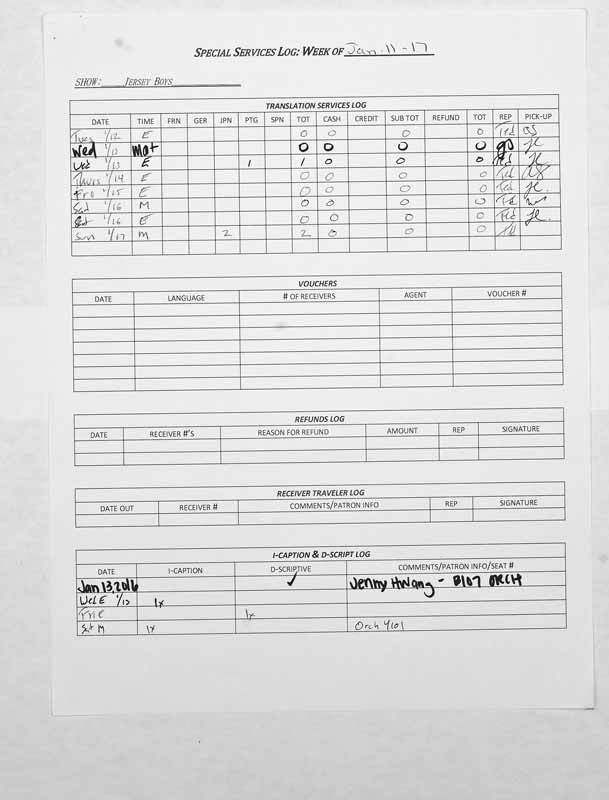 SPECIAL SERVICES LOG: WEEK OF Jan. 11-17
SHOW: JERSEY BOYS
TRANSLATION SERVICES LOG
DATE TIME FRN GER JPN PTG SPN TOT CASH CREDIT SUB TOT REFUND TOT REP PICK-UP
Tues 1/12 E 0 0 0 0 Ted
Wed 1/13 Mat 0 0 0 0
Wed 1/13 E 1 1 0 0 0 Ted JC
Thurs 1/14 E 0 0 0 0 Ted
Fri 1/15 E 0 0 0 0 Ted JC.
Sat 1/16 M 0 0 0 0 Ted
Sat 1/16 E 0 0 0 0 Ted JC.
Sun 1/17 M 2 2 0 0 0 Td
VOUCHERS
DATE LANGUAGE # OF RECEIVERS AGENT VOUCHER #
REFUNDS LOG
DATE RECEIVER #'S REASON FOR REFUND AMOUNT REP SIGNATURE
RECEIVER TRAVELER LOG
DATE OUT RECEIVER # COMMENTS/PATRON INFO REP SIGNATURE
I-CAPTION & D-SCRIPT LOG
DATE I-CAPTION D-SCRIPTIVE COMMENTS/PATRON INFO/SEAT #
Jan 13, 2016 ✓ Jenny Hwang - B107 ORCH
Wed E 1/13 1x
Fri E 1x
Sat M 1x Orch Y101